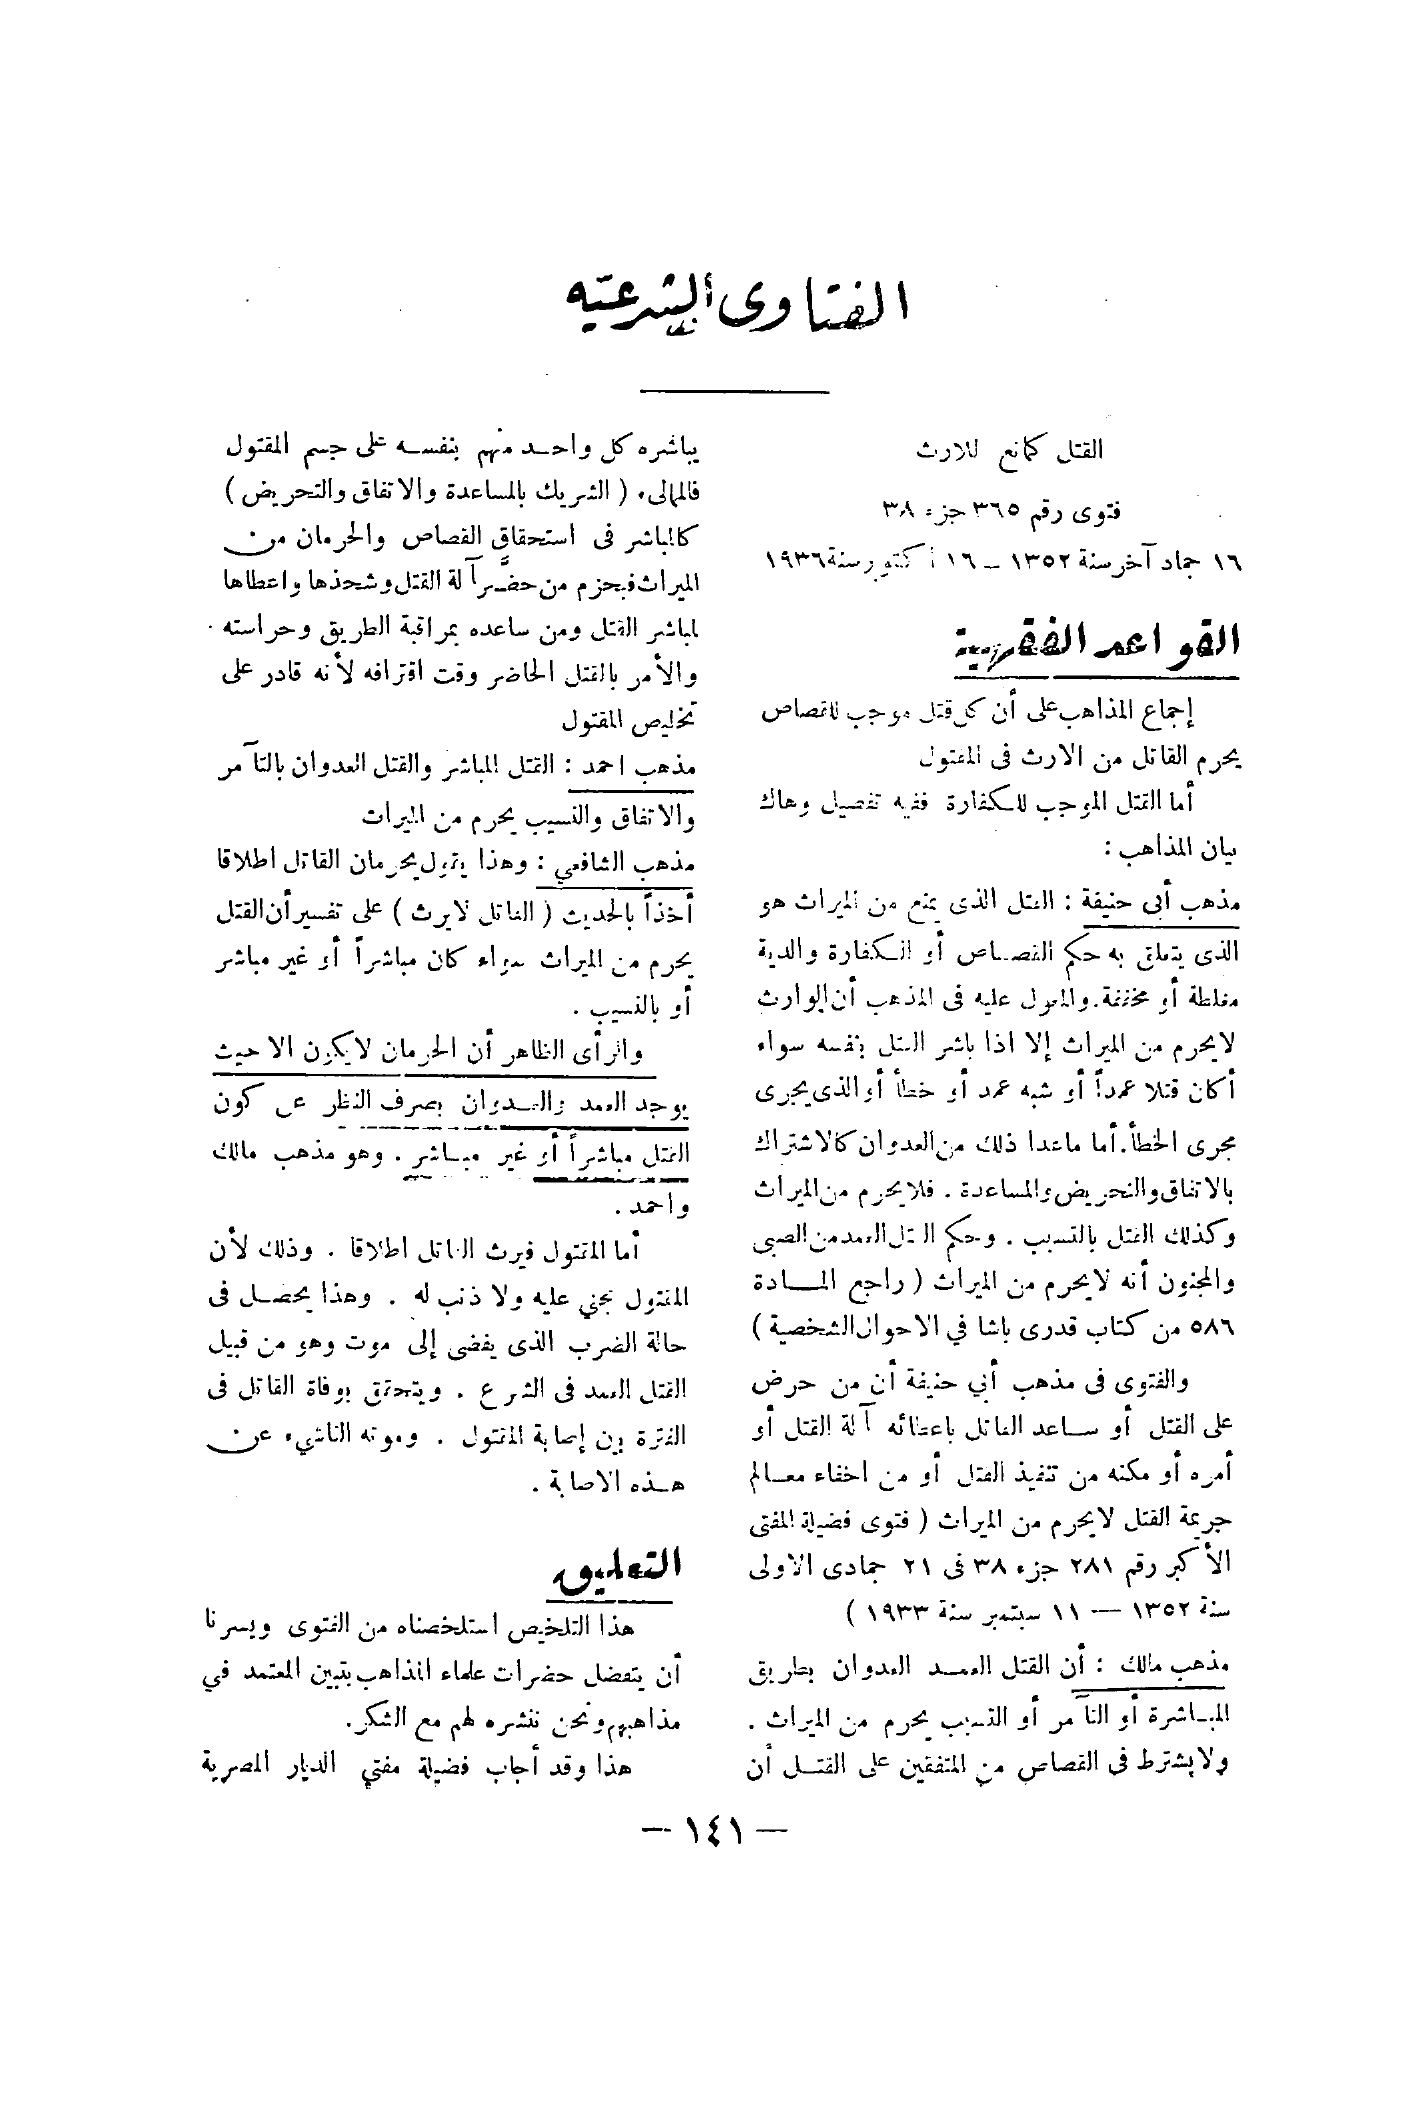 الفتاوى الشرعية
القتل كمانع للارث
فتوى رقم ٣٦٥ جزء ٣٨
١٦ جماد آخر سنة ١٣٥٢ – ١٦ أكتوبر سنة ١٩٣٦
القواعد الفقهية
إجماع المذاهب على أن كل قتل موجب للقصاص
يحرم القاتل من الارث فى المقتول
أما القتل الموجب للكفارة ففيه تفصيل وهاك
بيان المذاهب :
مذهب أبى حنيفة : القتل الذى يمنع من الميراث هو
الذى يتعلق به حكم القصاص أو الكفارة والدية
مغلظة أو مخففة. والمعول عليه فى المذهب أن الوارث
لا يحرم من الميراث إلا اذا باشر القتل بنفسه سواء
أكان قتلا عمداً أو شبه عمد أو خطأ أو الذى يجرى
مجرى الخطأ. أما ماعدا ذلك من العدوان كالاشتراك
بالاتفاق والتحريض والمساعدة . فلا يحرم من الميراث
وكذلك القتل بالتسبب . وحكم القتل العمد من الصبى
والمجنون أنه لا يحرم من الميراث ( راجع المادة
٥٨٦ من كتاب قدرى باشا في الاحوال الشخصية )
والفتوى فى مذهب أبي حنيفة أن من حرض
على القتل أو ساعد القاتل باعطائه آلة القتل أو
أمره أو مكنه من تنفيذ القتل أو من اخفاء معالم
جريمة القتل لا يحرم من الميراث ( فتوى فضيلة المفتى
الأكبر رقم ٢٨١ جزء ٣٨ فى ٢١ جمادى الاولى
سنة ١٣٥٢ — ١١ سبتمبر سنة ١٩٣٣ )
مذهب مالك : أن القتل العمد العدوان بطريق
المباشرة أو التآمر أو التسبب يحرم من الميراث .
ولا يشترط فى القصاص من المتفقين على القتل أن
يباشره كل واحد منهم بنفسه على جسم المقتول
فالمالىء ( الشريك بالمساعدة والاتفاق والتحريض )
كالمباشر فى استحقاق القصاص والحرمان من
الميراث فيحرم من حضَّر آلة القتل وشحذها واعطاها
لمباشر القتل ومن ساعده بمراقبة الطريق وحراسته .
والأمر بالقتل الحاضر وقت اقترافه لأنه قادر على
تخليص المقتول
مذهب احمد : القتل المباشر والقتل العدوان بالتآمر
والاتفاق والتسيب يحرم من الميراث
مذهب الشافعي : وهذا يقول بحرمان القاتل اطلاقا
أخذاً بالحديث ( القاتل لا يرث ) على تفسير أن القتل
يحرم من الميراث سواء كان مباشراً أو غير مباشر
أو بالتسيب .
والرأى الظاهر أن الحرمان لا يكون الا حيث
يوجد العمد والعدوان بصرف النظر عن كون
القتل مباشراً أو غير مباشر . وهو مذهب مالك
واحمد .
أما المقتول فيرث القاتل اطلاقا . وذلك لأن
المقتول مجني عليه ولا ذنب له . وهذا يحصل فى
حالة الضرب الذى يفضى إلى موت وهو من قبيل
القتل العمد فى الشرع . ويتحقق بوفاة القاتل فى
الفترة بين إصابة المقتول . وموته الناشىء عن
هذه الاصابة .
التعليق
هذا التلخيص استلخصناه من الفتوى ويسرنا
أن يتفضل حضرات علماء المذاهب بتبين المعتمد في
مذاهبهم ونحن ننشره لهم مع الشكر.
هذا وقد أجاب فضيلة مفتي الديار المصرية
— ١٤١ —